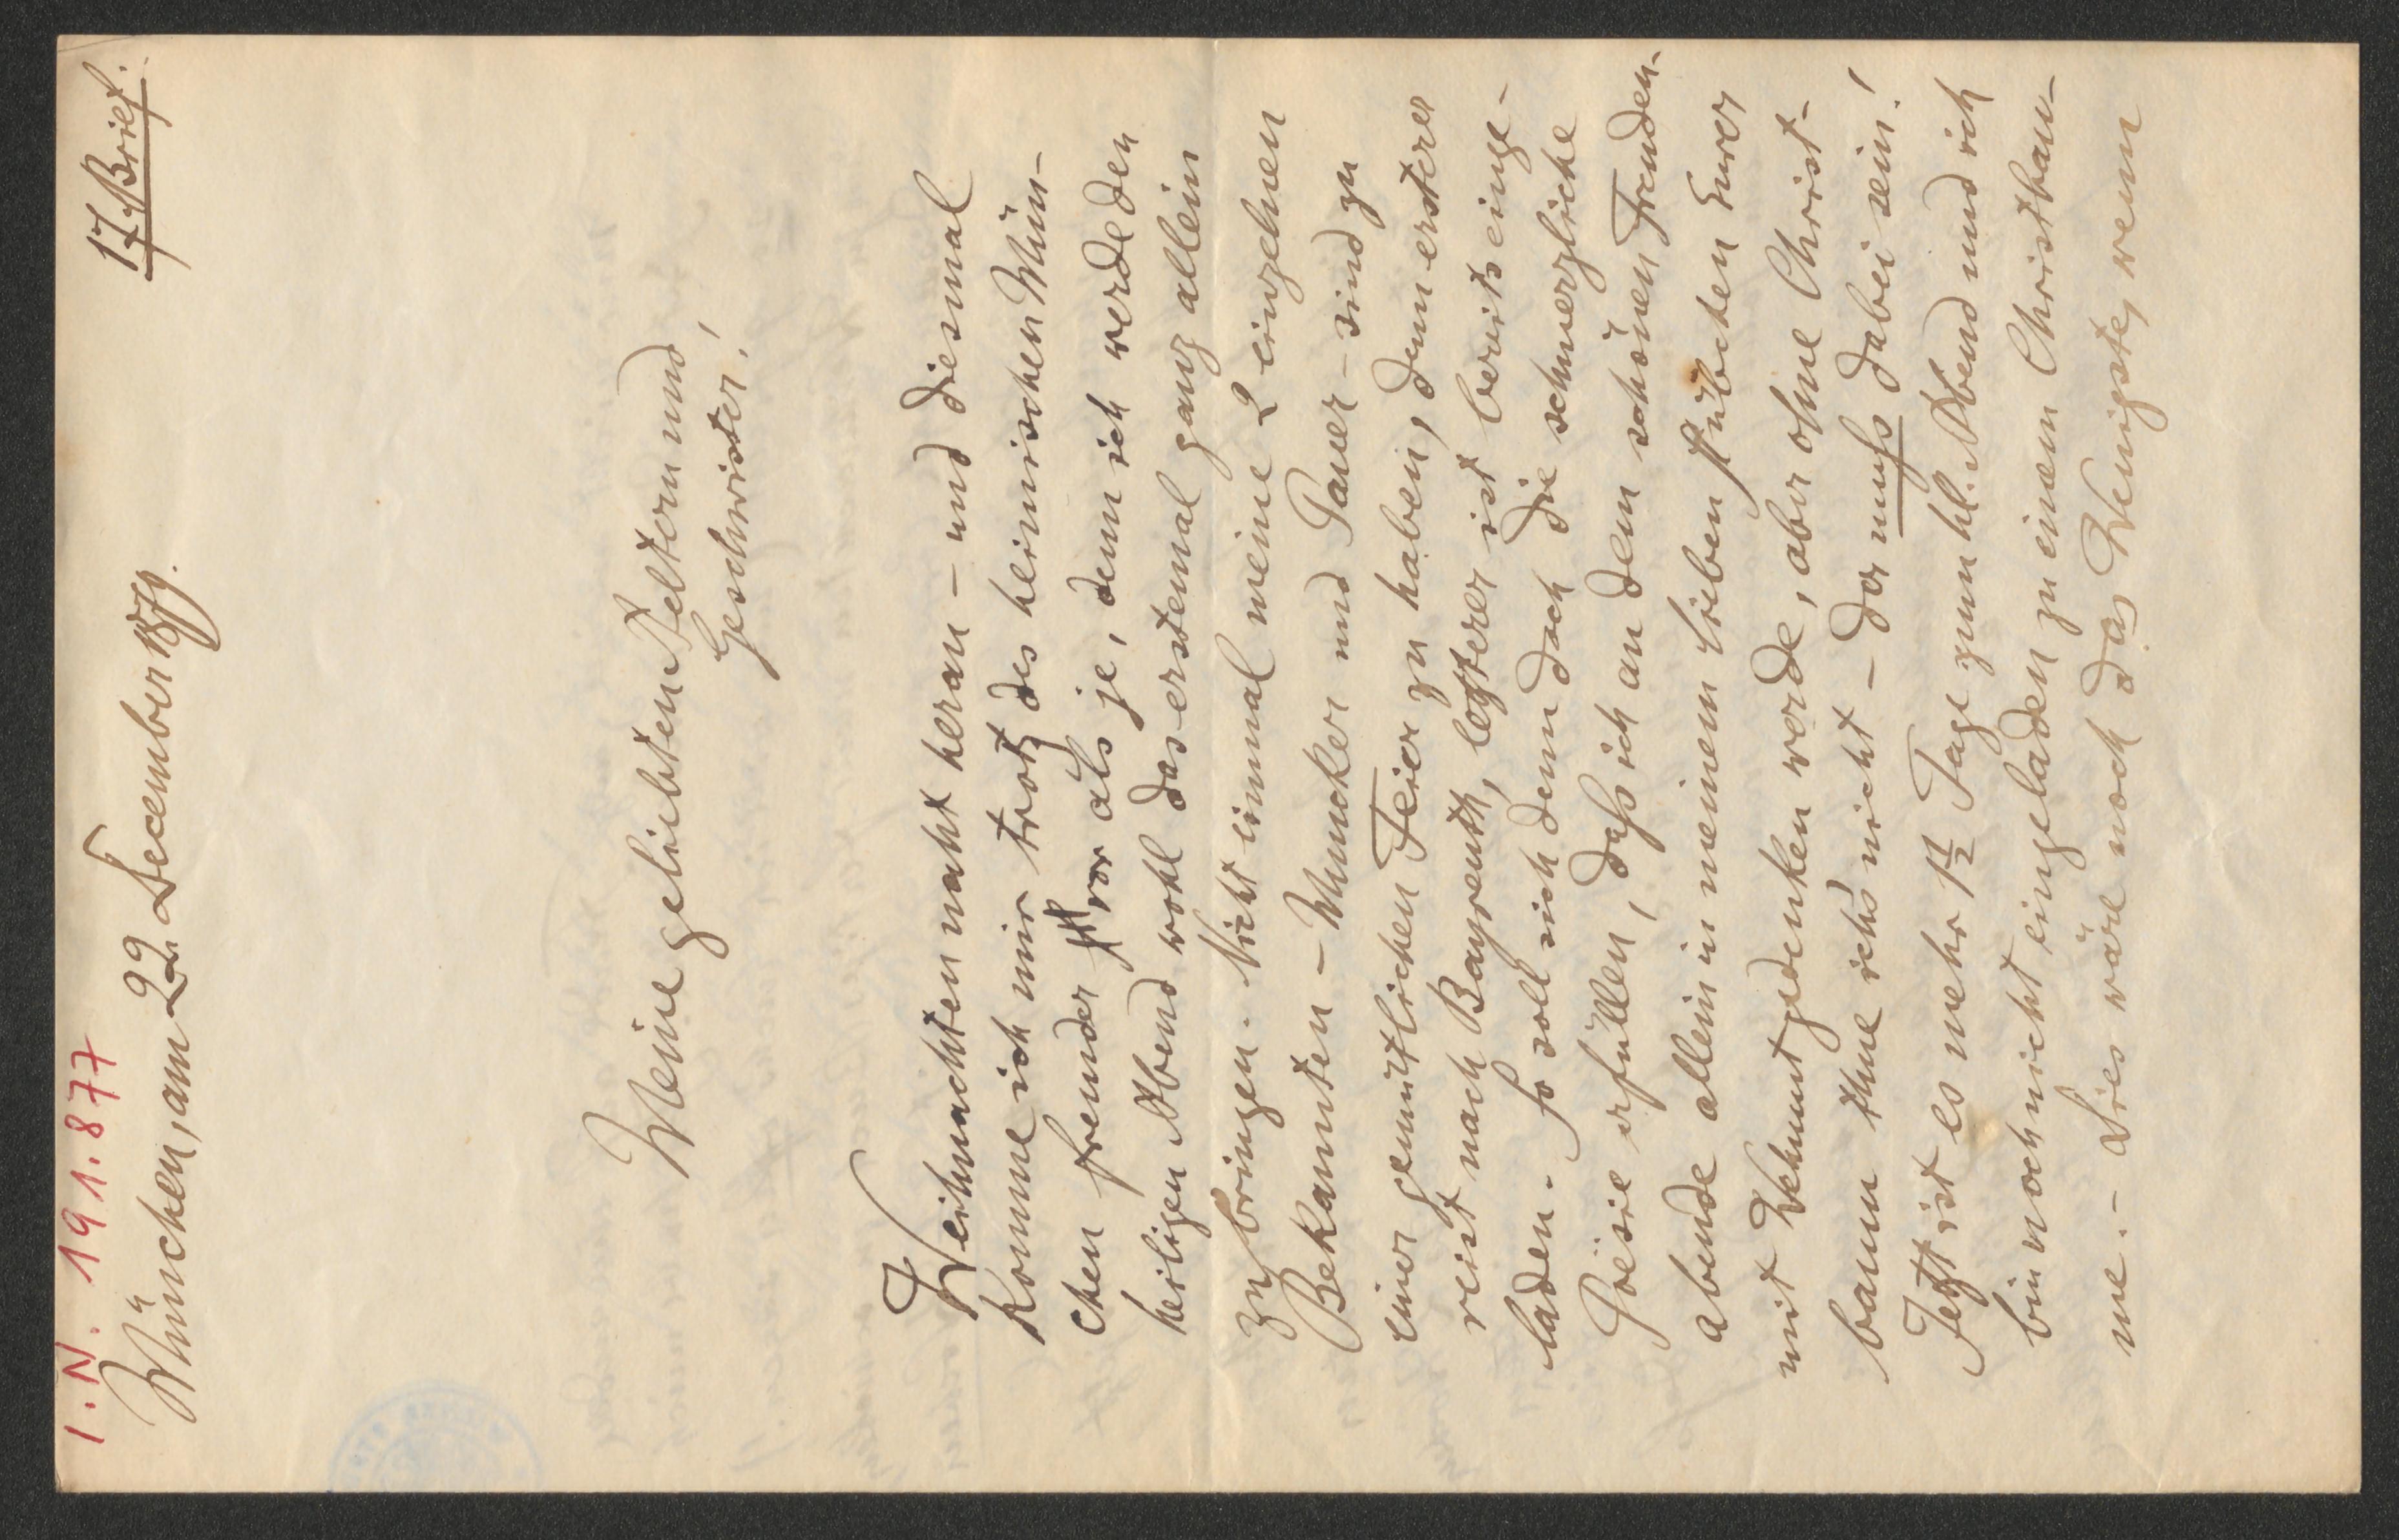 I. N. 191.877
17. Brief.
München, am 22. December 1879.
Meine geliebten Aeltern und
Geschwister!
Weihnachten naht heran – und diesmal
komme ich mir trotz des heimischen Mün-
chen fremder vor als je, denn ich werde den
heiligen Abend wohl das erstemal ganz allein
zubringen. Nicht einmal meine 2 einzelnen
Bekannten – Muncker und Pauer – sind zu
einer gemütlichen Feier zu haben, denn ersterer
reist nach Bayreuth, letzterer ist bereits einge-
laden. So soll sich denn doch die schmerzliche
Poësie erfüllen, daß ich an dem schönen Freuden-
abende allein in meinem lieben Stübchen Eurer
mit Wehmut gedenken werde, aber ohne Christ-
baum thue ich's nicht – der muß dabei sein!
Jetzt ist es mehr 1 1/2 Tage zum hl. Abend und ich
bin noch nicht eingeladen zu einem Christbau-
me. – Dies wäre noch das Wenigste, wenn